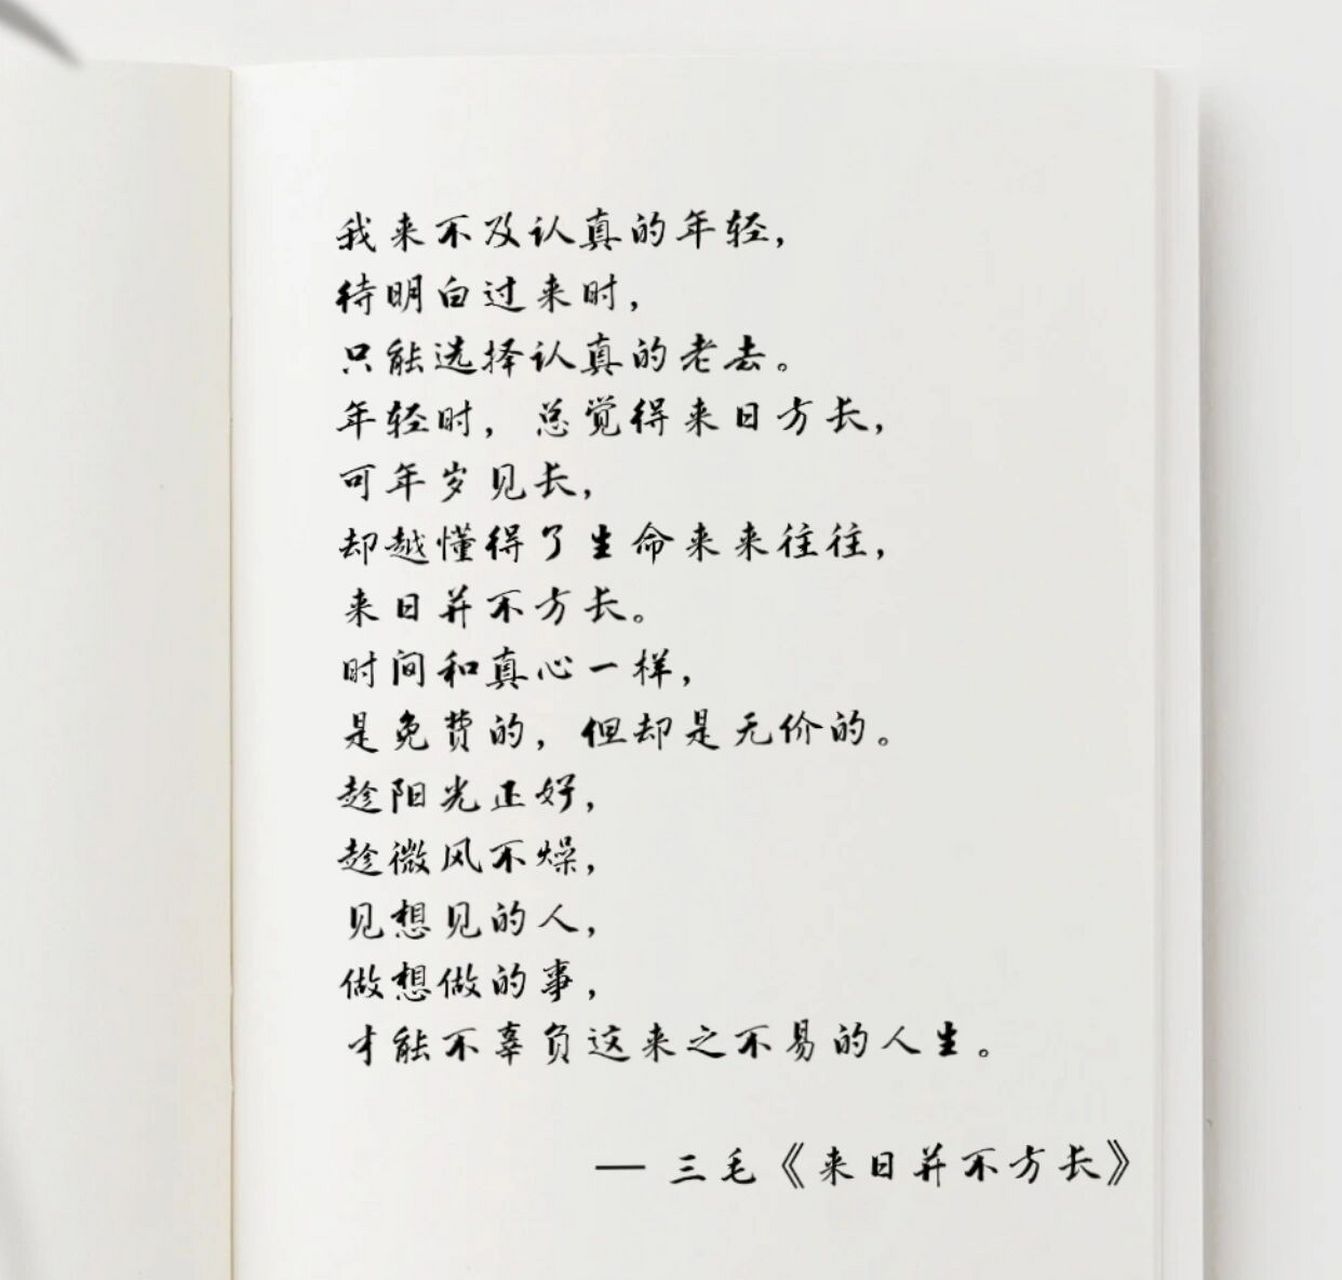 我来不及认真的年轻，
待明白过来时，
只能选择认真的老去。
年轻时，总觉得来日方长，
可年岁见长，
却越懂得了生命来来往往，
来日并不方长。
时间和真心一样，
是免费的，但却是无价的。
趁阳光正好，
趁微风不燥，
见想见的人，
做想做的事，
才能不辜负这来之不易的人生。
— 三毛《来日并不方长》